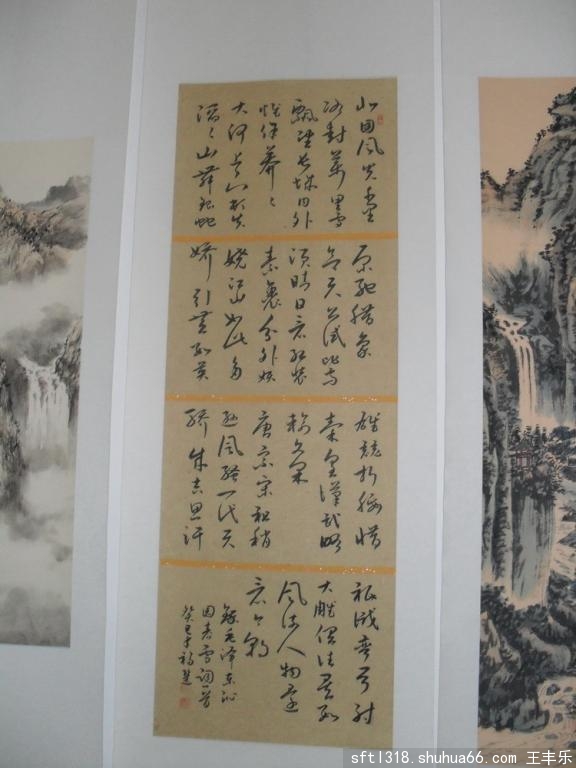 北国风光千里
冰封萬里雪
飘望长城内外
惟余莽莽
大河上下顿失
滔滔山舞银蛇
原驰腊象
天公试比高
须晴日看红装
素裹分外妖
娆江山如此多
娇引无数英
雄竞折腰惜
秦皇漢武略
输文采
唐宗宋祖稍
逊风骚一代天
骄成吉思汗
祇识弯弓射
大雕俱往矣数
风流人物还
看今朝
录毛泽东沁
园春雪词一首
癸巳
sft1318.shuhua66.com 王丰乐